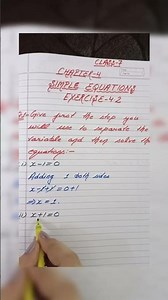 CLASS-7
CHAPTER-4
SIMPLE EQUATIONS
EXERCISE-4.2
Q1:- Give first the step you
will use to separate the
variable and then solve the
equation:-
i) x-1=0
Adding 1 both sides
x-1+1=0+1
⇒x=1
ii) x+1=0